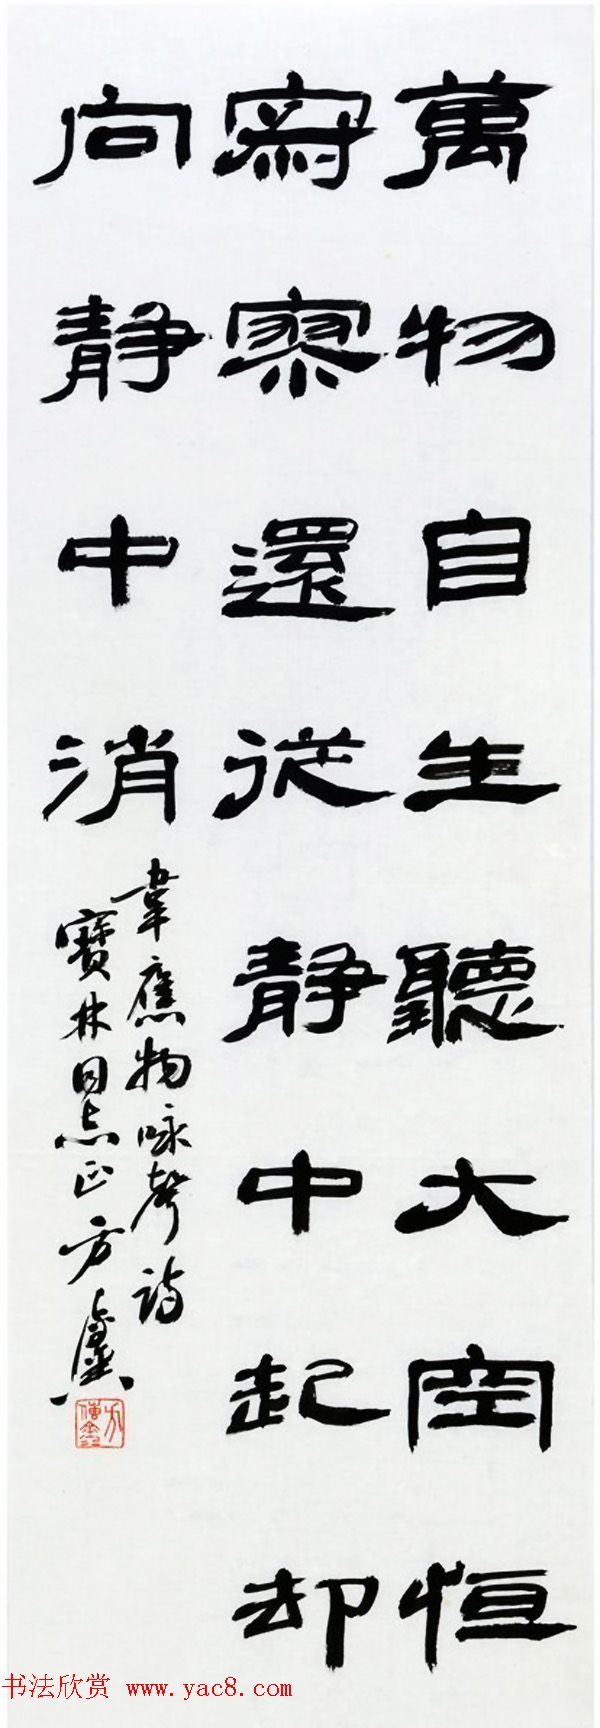 萬物自生聽大空恒
寂寥還從静中起却
向静中消
韋應物咏聲詩
寶林同志正方
书法欣赏 www.yac8.com